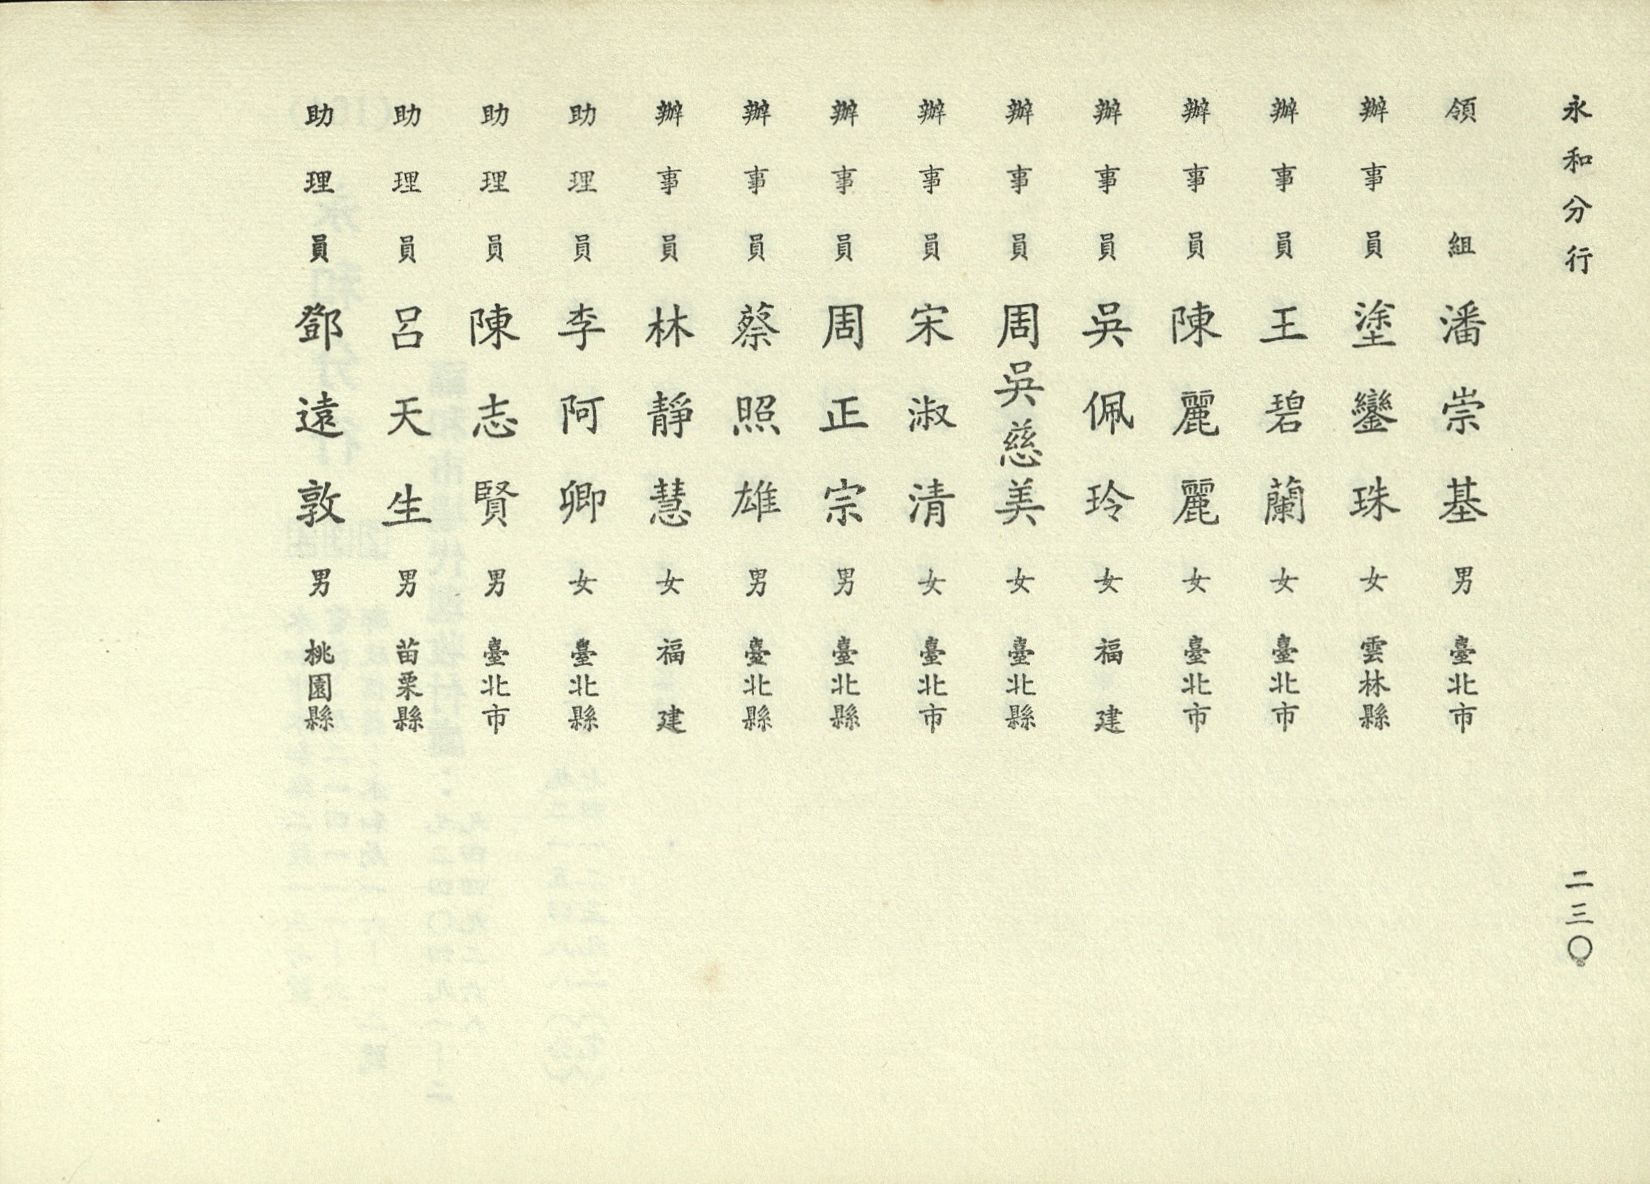 永和分行
二三〇
領組 潘崇基 男 臺北市
辦事員 塗鑾珠 女 雲林縣
辦事員 王碧蘭 女 臺北市
辦事員 陳麗麗 女 臺北市
辦事員 吳佩玲 女 福建
辦事員 周吳慈美 女 臺北縣
辦事員 宋淑清 女 臺北市
辦事員 周正宗 男 臺北縣
辦事員 蔡照雄 男 臺北縣
辦事員 林靜慧 女 福建
助理員 李阿卿 女 臺北縣
助理員 陳志賢 男 臺北市
助理員 呂天生 男 苗栗縣
助理員 鄧遠敦 男 桃園縣